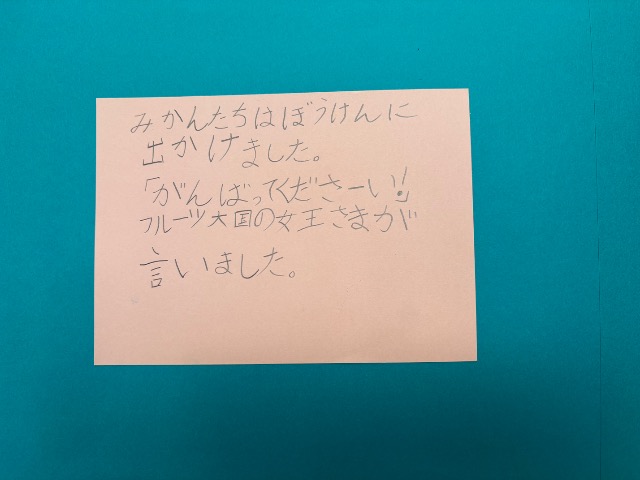 みかんたちはぼうけんに
出かけました。
「がんばってくださーい!」
フルーツ大国の女王さまが
言いました。